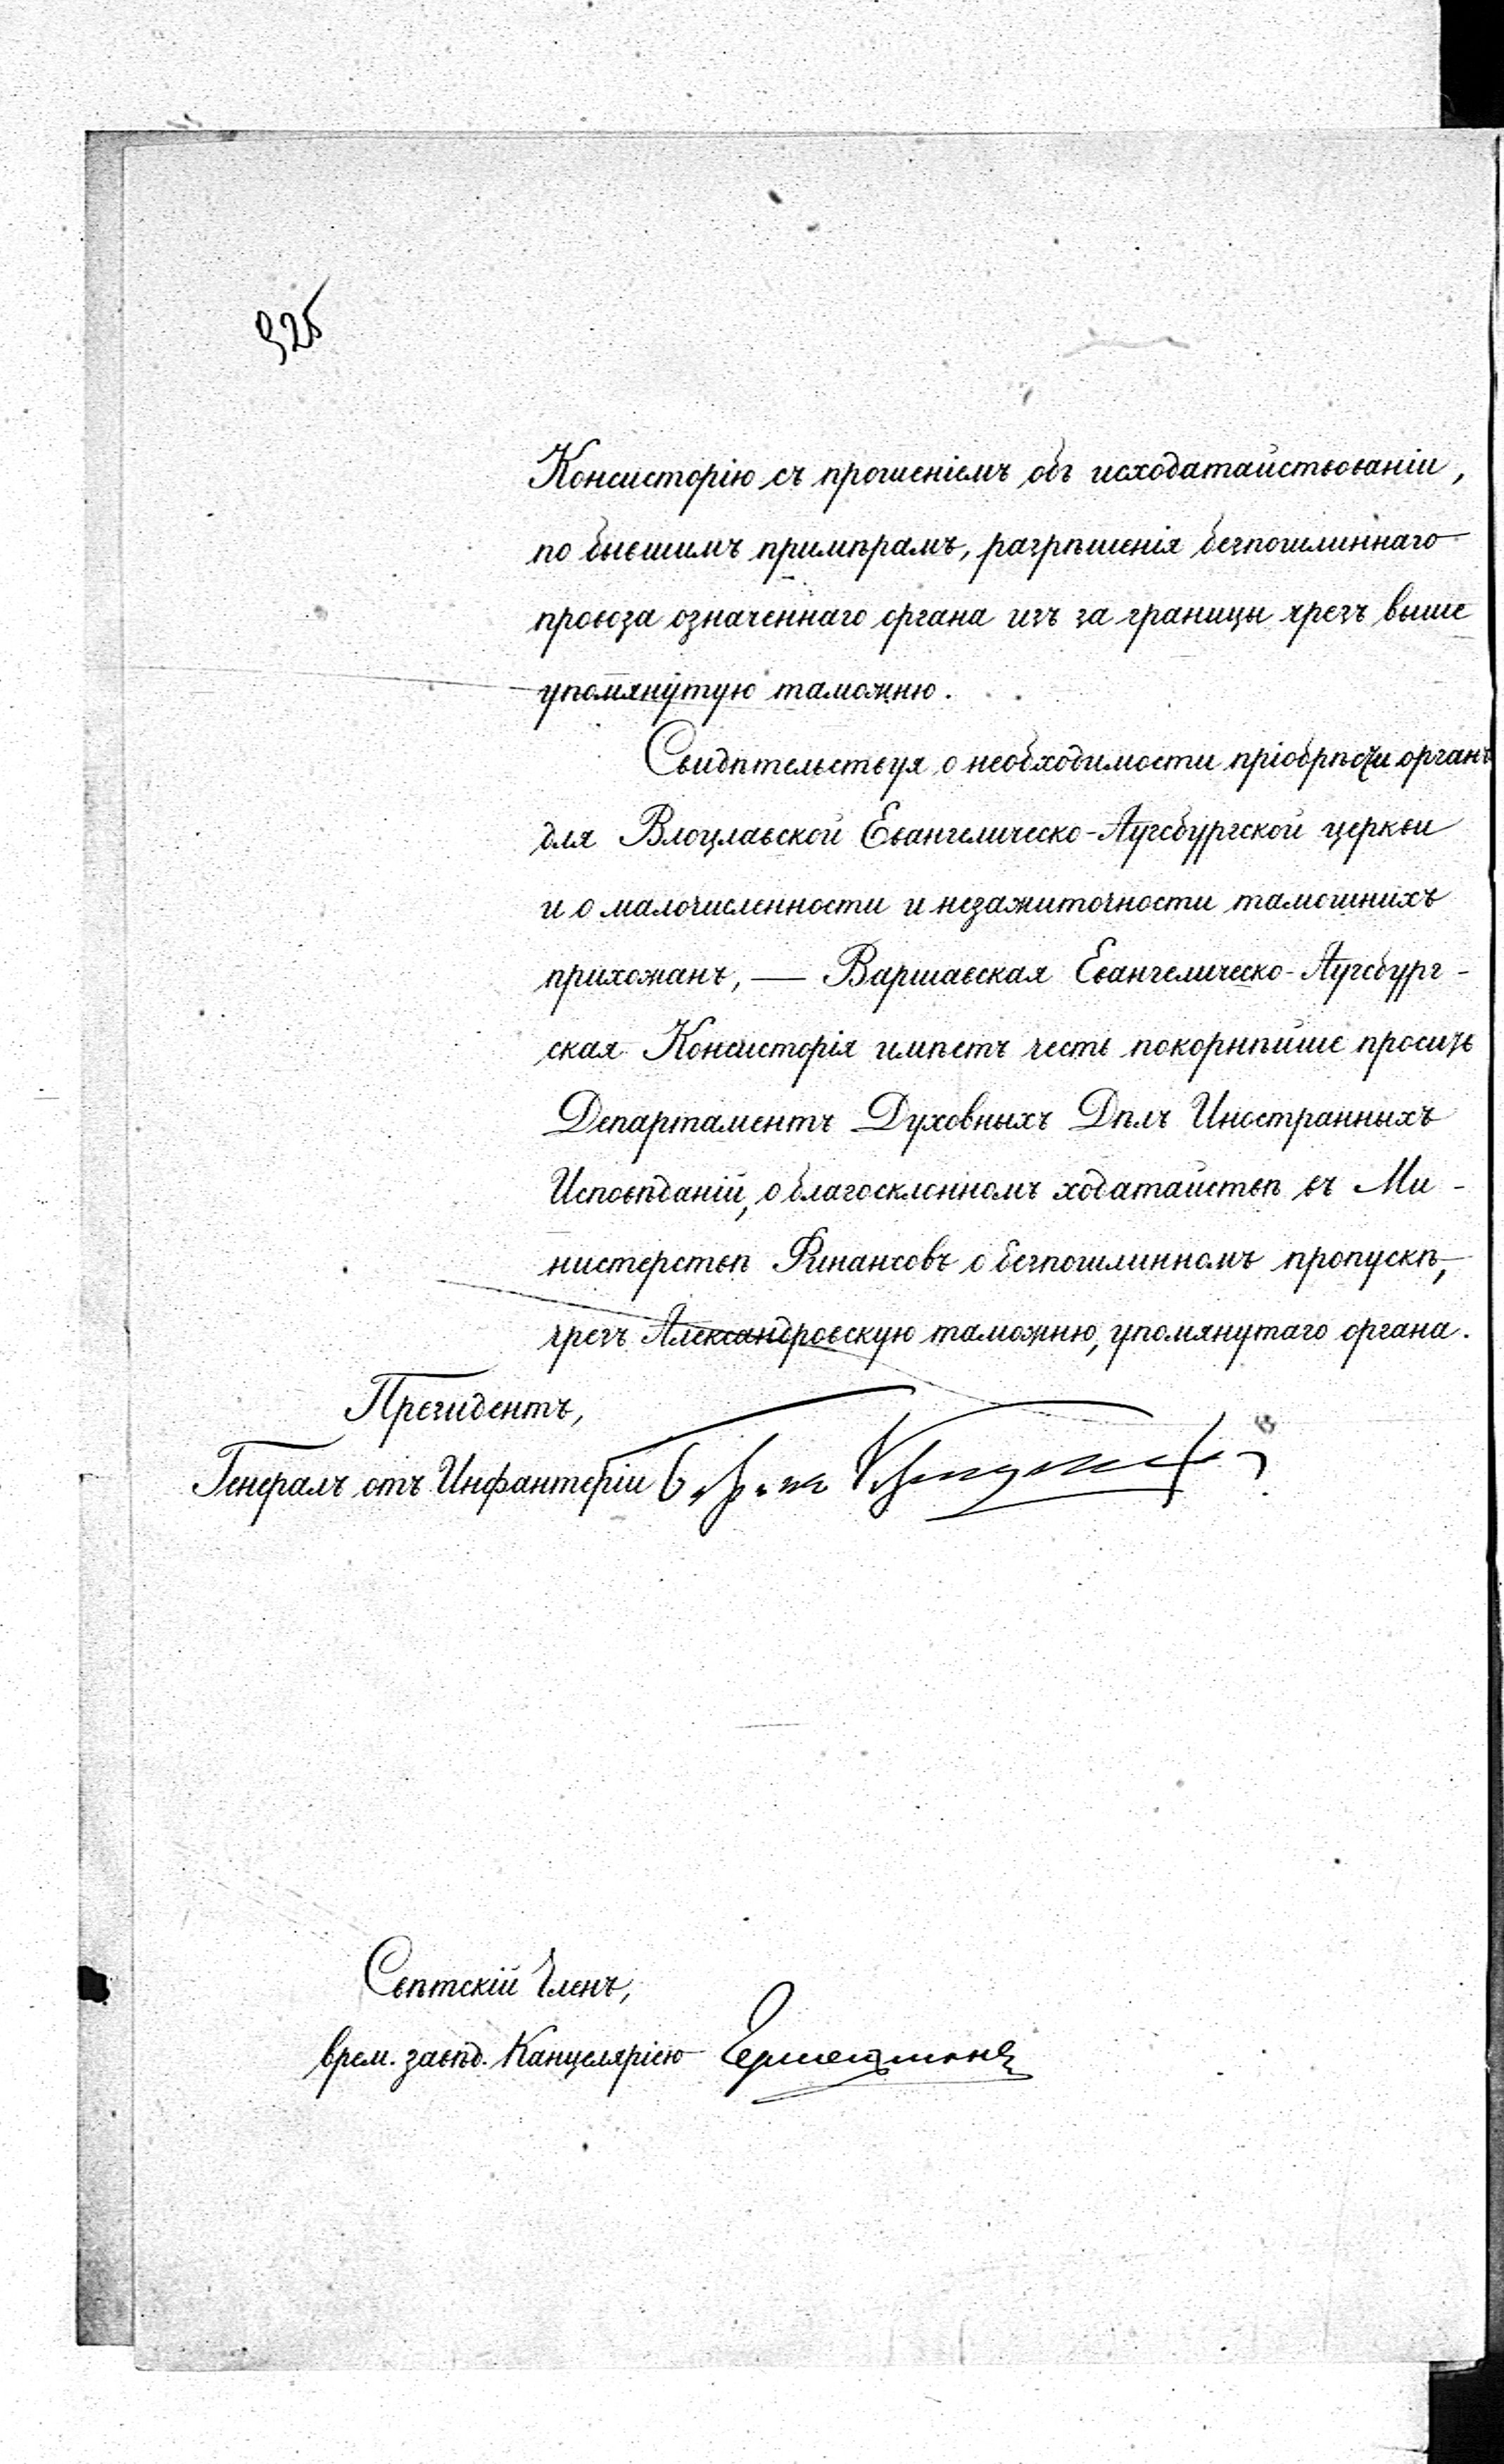 925
Консисторію съ прошеніемъ объ исходатайствованіи,
по бывшимъ примѣрамъ, разрѣшенія безпошлиннаго
провоза означеннаго органа изъ за границы чрезъ выше
упомянутую таможню.
Свидѣтельствуя о необходимости пріобрѣсти органъ
для Влоцлавской Евангелическо-Аугсбургской церкви
и о малочисленности и незажиточности тамошнихъ
прихожанъ, — Варшавская Евангелическо-Аугсбург-
ская Консисторія имѣетъ честь покорнѣйше просить
Департаментъ Духовныхъ Дѣлъ Иностранныхъ
Исповѣданій, о благосклонномъ ходатайствѣ въ Ми-
нистерствѣ Финансовъ о безпошлинномъ пропускѣ,
чрезъ Александровскую таможню, упомянутаго органа.
Президентъ,
Генералъ отъ Инфантеріи
Свѣтскій Членъ,
врем. завѣд. Канцеляріею